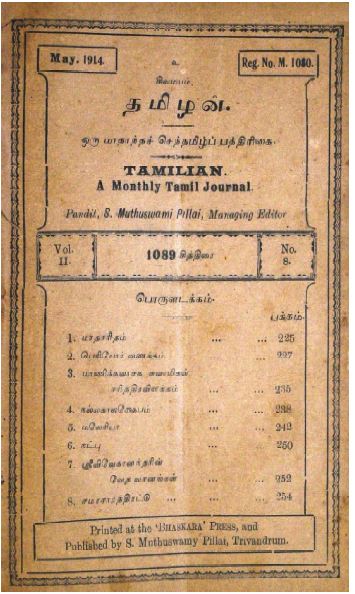 May. 1914.
உ
சிவமயம்.
Reg. No. M. 1080.
தமிழன்.
ஒரு மாதாந்தச் செந்தமிழ்ப் பத்திரிகை.
TAMILIAN.
A Monthly Tamil Journal.
Pandit, S. Muthuswami Pillai, Managing Editor
Vol. II.
1089 சித்திரை
No. 8.
பொருளடக்கம்.
பக்கம்.
1. மாதசரிதம் ... ... 225
2. பெரியோர் வணக்கம் ... 227
3. மாணிக்கவாசக சுவாமிகள்
சரித்திரவிளக்கம் ... 235
4. நல்லகாலக்ஷேபம் ... ... 238
5. மலேரியா ... ... 242
6. நட்பு ... ... 250
7. ஸ்ரீவிவேகானந்தரின்
வேத வாசகங்கள் ... 252
8. சமாசாரத்திரட்டு ... ... ... 254
Printed at the 'BHASKARA' PRESS, and
Published by S. Muthuswamy Pillai, Trivandrum.